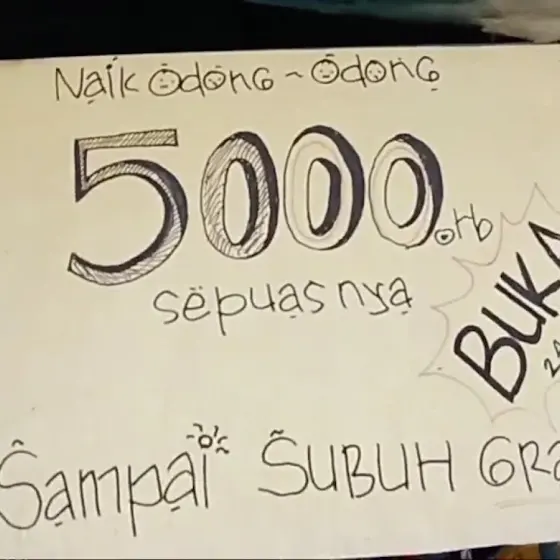 Naik Odong ~ Odong
5000.rb
sepuasnya
BUKA
Sampai SUBUH